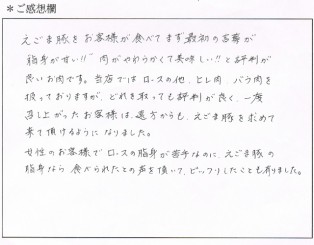 ＊ご感想欄
えごま豚をお客様が食べてまず最初の言葉が
脂身が甘い!! 肉がやわらかくて美味しい!! と評判が
良いお肉です。当店ではロースの他、ヒレ肉、バラ肉を
扱っておりますが、どれを取っても評判が良く、一度
召し上がったお客様は、遠方からも、えごま豚を求めて
来て頂けるようになりました。
女性のお客様でロースの脂身が苦手なのに、えごま豚の
脂身なら食べられたとの声を頂いて、ビックリしたことも有りました。